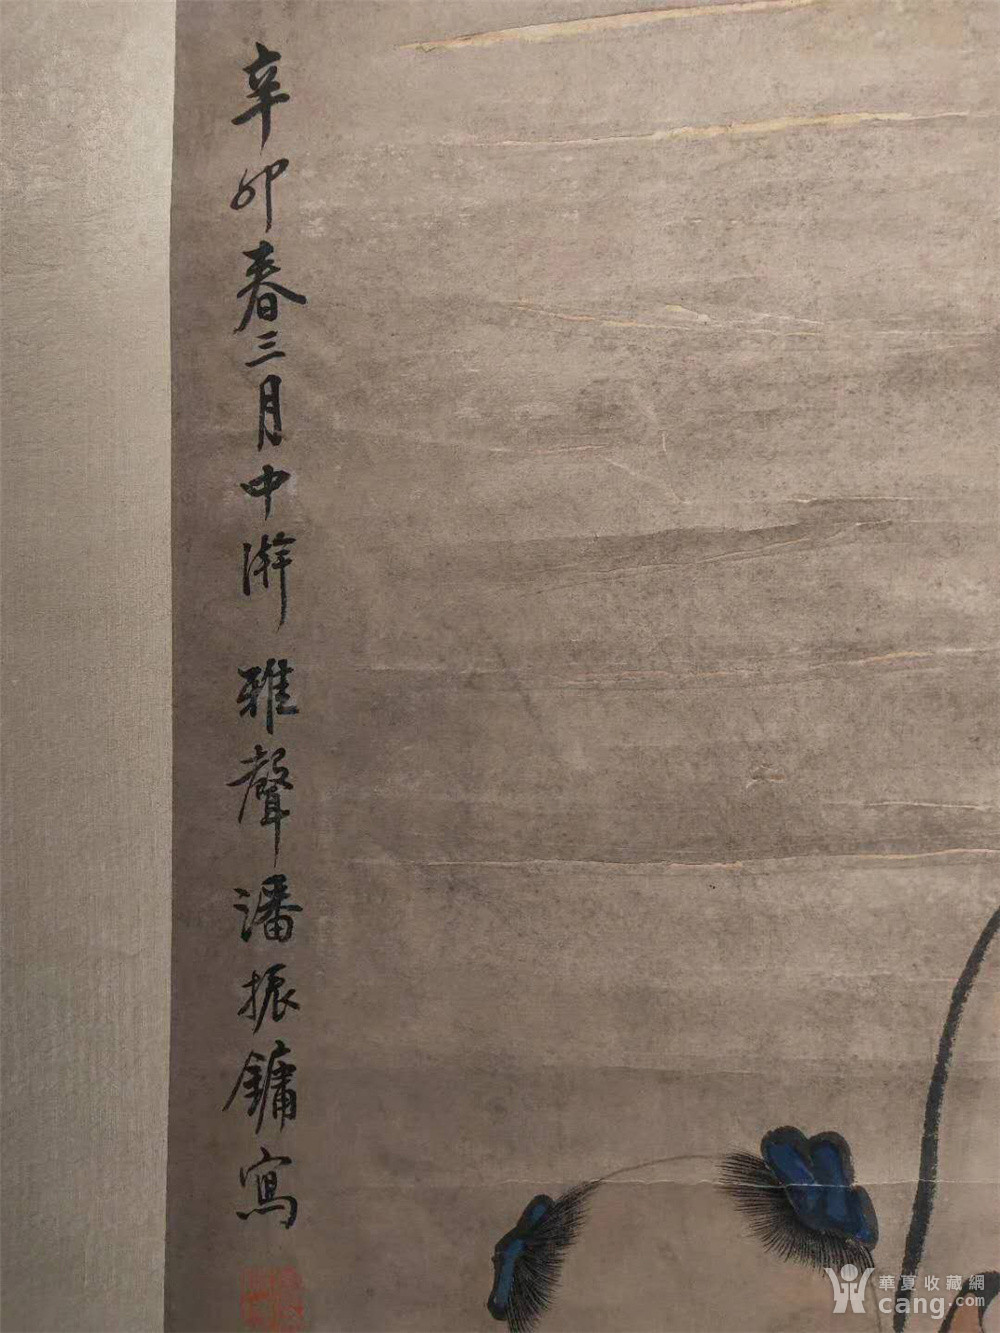 辛卯春三月中澣雅聲潘振鏞寫
華夏收藏網
cang.com